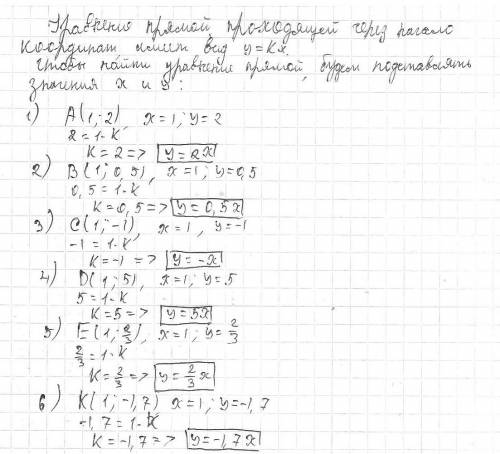 Уравнение прямой, проходящей через начало
координат имеет вид y=kx.
Чтобы найти уравнение прямой, будем подставлять
значения x и y:
1) A(1;2) x=1; y=2
2=1·k
k=2 => y=2x
2) B(1; 0,5), x=1; y=0,5
0,5=1·k
k=0,5 => y=0,5x
3) C(1;-1), x=1, y=-1
-1=1·k
k=-1 => y=-x
4) D(1;5), x=1; y=5
5=1·k
k=5 => y=5x
5) E(1; 2/3), x=1; y=2/3
2/3=1·k
k=2/3 => y=2/3x
6) K(1;-1,7) x=1; y=-1,7
-1,7=1·k
k=-1,7 => y=-1,7x